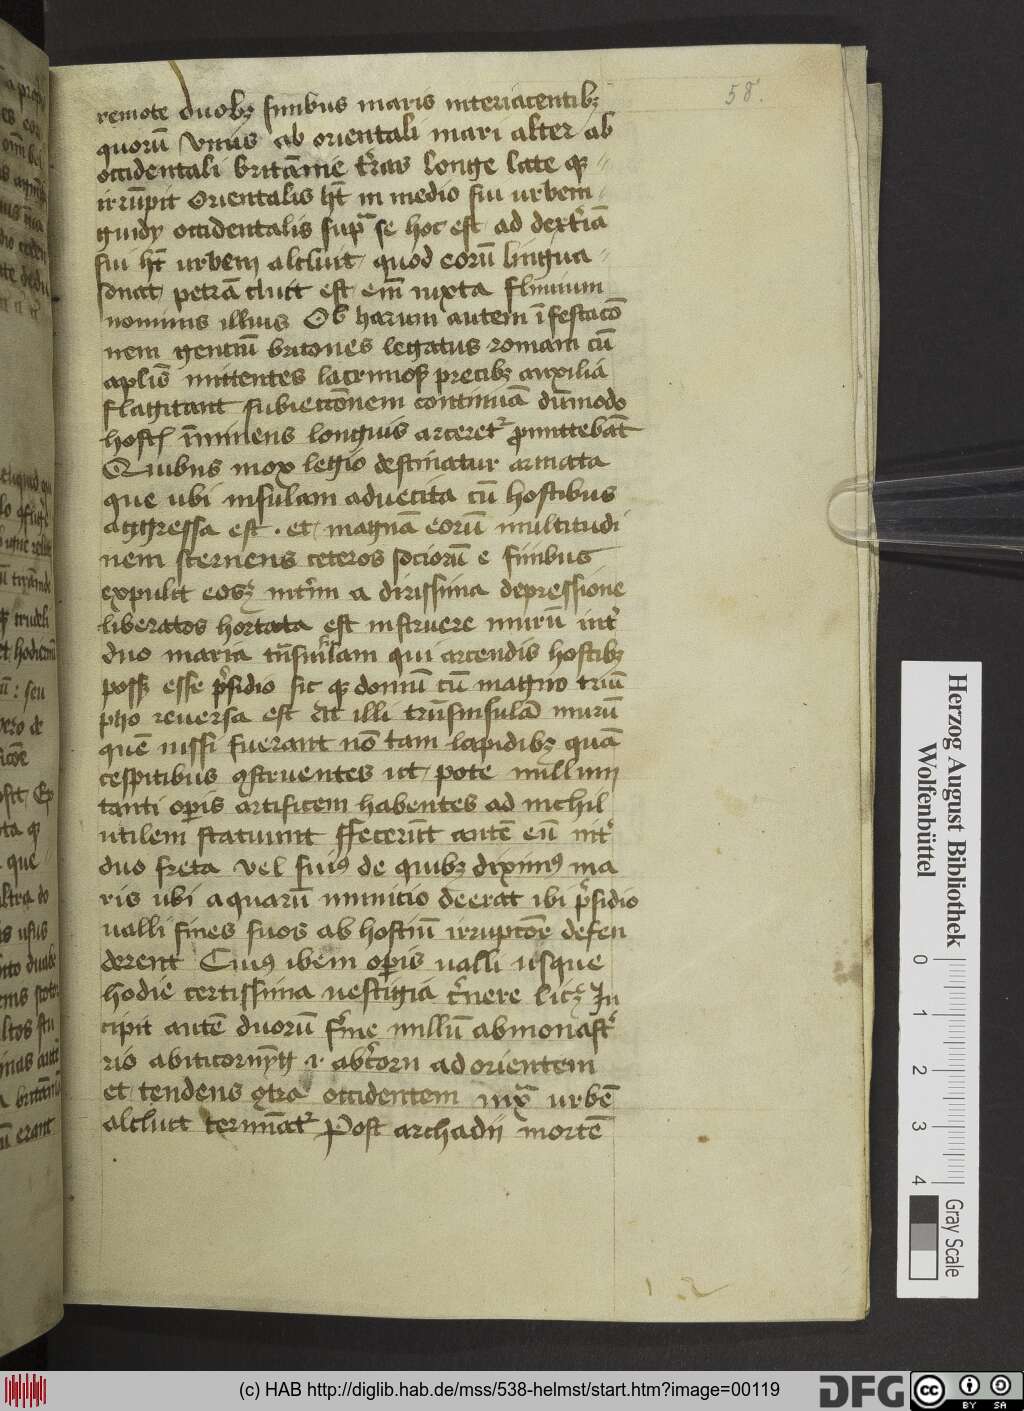 58.
remote duobꝫ sinibus maris interiacentibꝫ
quorū vnus ab orientali mari alter ab
occidentali britānie t̓ras longe late qꝫ
irrūpit Orientalis ht̄ in medio sui urbem
guidy occidentalis supᵃ se hoc est ad dext̓iā
sui ht̄ urbem alcluit quod eorū lingua
sonat petrā cluit est em̄ iuxta fluuium
nominis illius Ob harum autem īfestacō
nem gentiū britones legatus romam cū
ep̄lis mittentes lacrimosꝭ precibꝫ auxilia
flagitant subiectōnem continuā dūmodo
hostꝭ īminens longius arceret᷑ ꝓmittebāt
Quibus mox legio destinatur armata
que ubi insulam aduecta cū hostibus
aggressa est . et magnā eorū multitudi
nem sternens ceteros sociorū e finibus
expulit eosꝫ int̓im a dirissima depressione
liberatos hortata est instruere murū int̓
duo maria tn̄sin̓lam qui arcendis hostibꝫ
possꝫ esse p̓sidio sic qꝫ domū cū magno triū
pho reuersa est At illi trn̄sinsulā murū
quē iussi fuerant nō tam lapidibꝫ quā
cespitibus ꝯstruentes ut pote nullum
tanti oꝑis artificem habentes ad nichil
utilem statuunt ffecerūt autē eū int̓
duo freta vel sinꝰ de quibꝫ diximꝰ ma
ris ubi aquarū municio deerat ibi p̓sidio
ualli fines suos ab hostiū irrupcōe defen
derent Cuiꝰ ibem oꝑis ualli usque
hodie certissima uestigia c̓nere licꝫ In
cipit autē duorū f̓me millū abmonast̓
rio abiticornyg .i. abc̓corn ad orientem
et tendens ꝯtra occidentem iuxᵃ urbē
alcluit termīat᷑ Post archadii mortē
Herzog August Bibliothek
Wolfenbüttel
0 1 2 3 4
Gray Scale
(c) HAB http://diglib.hab.de/mss/538-helmst/start.htm?image=00119
DFG
cc BY SA